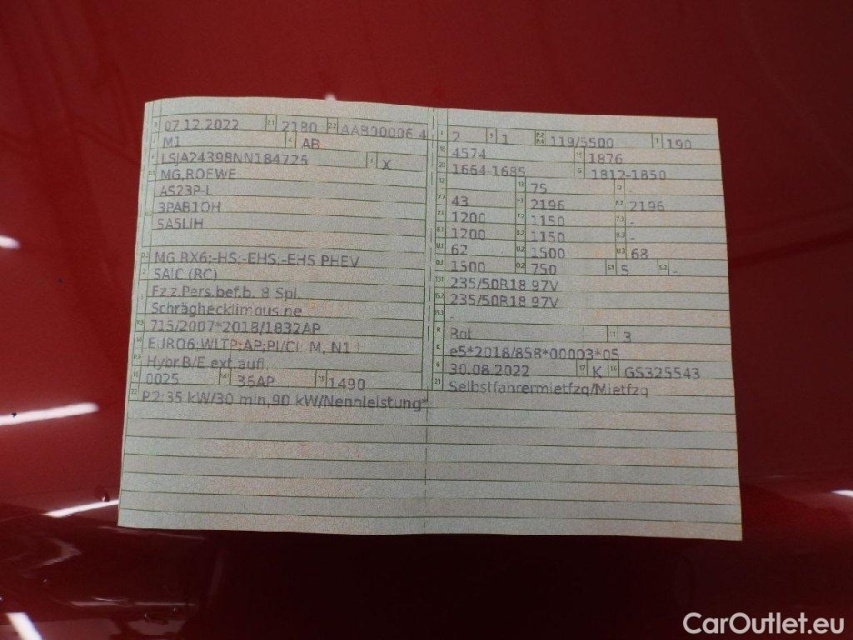 07.12.2022 2180 AAB00006 4
M1 AB
LSJA24398NN184725 X
MG,ROEWE
AS23P-L
3PAB1OH
SA5LIH
MG RX6;-HS;-EHS;-EHS PHEV
SAIC (RC)
Fz.z.Pers.bef.b. 8 Spl.
Schräghecklimousine
715/2007*2018/1832AP
EURO6;WLTP;AP;PI/CI M, N1 I
Hybr.B/E ext.aufl
0025 36AP 1490
P2:35 kW/30 min,90 kW/Nennleistung*
2 1 119/5500 190
4574 1876
1664-1685 1812-1850
75 -
43 2196 2196
1200 1150 -
1200 1150 -
62 1500 68
1500 750 5 -
235/50R18 97V
235/50R18 97V
-
Rot 3
e5*2018/858*00003*05
30.08.2022 K GS325543
Selbstfahrermietfzg/Mietfzg
CarOutlet.eu